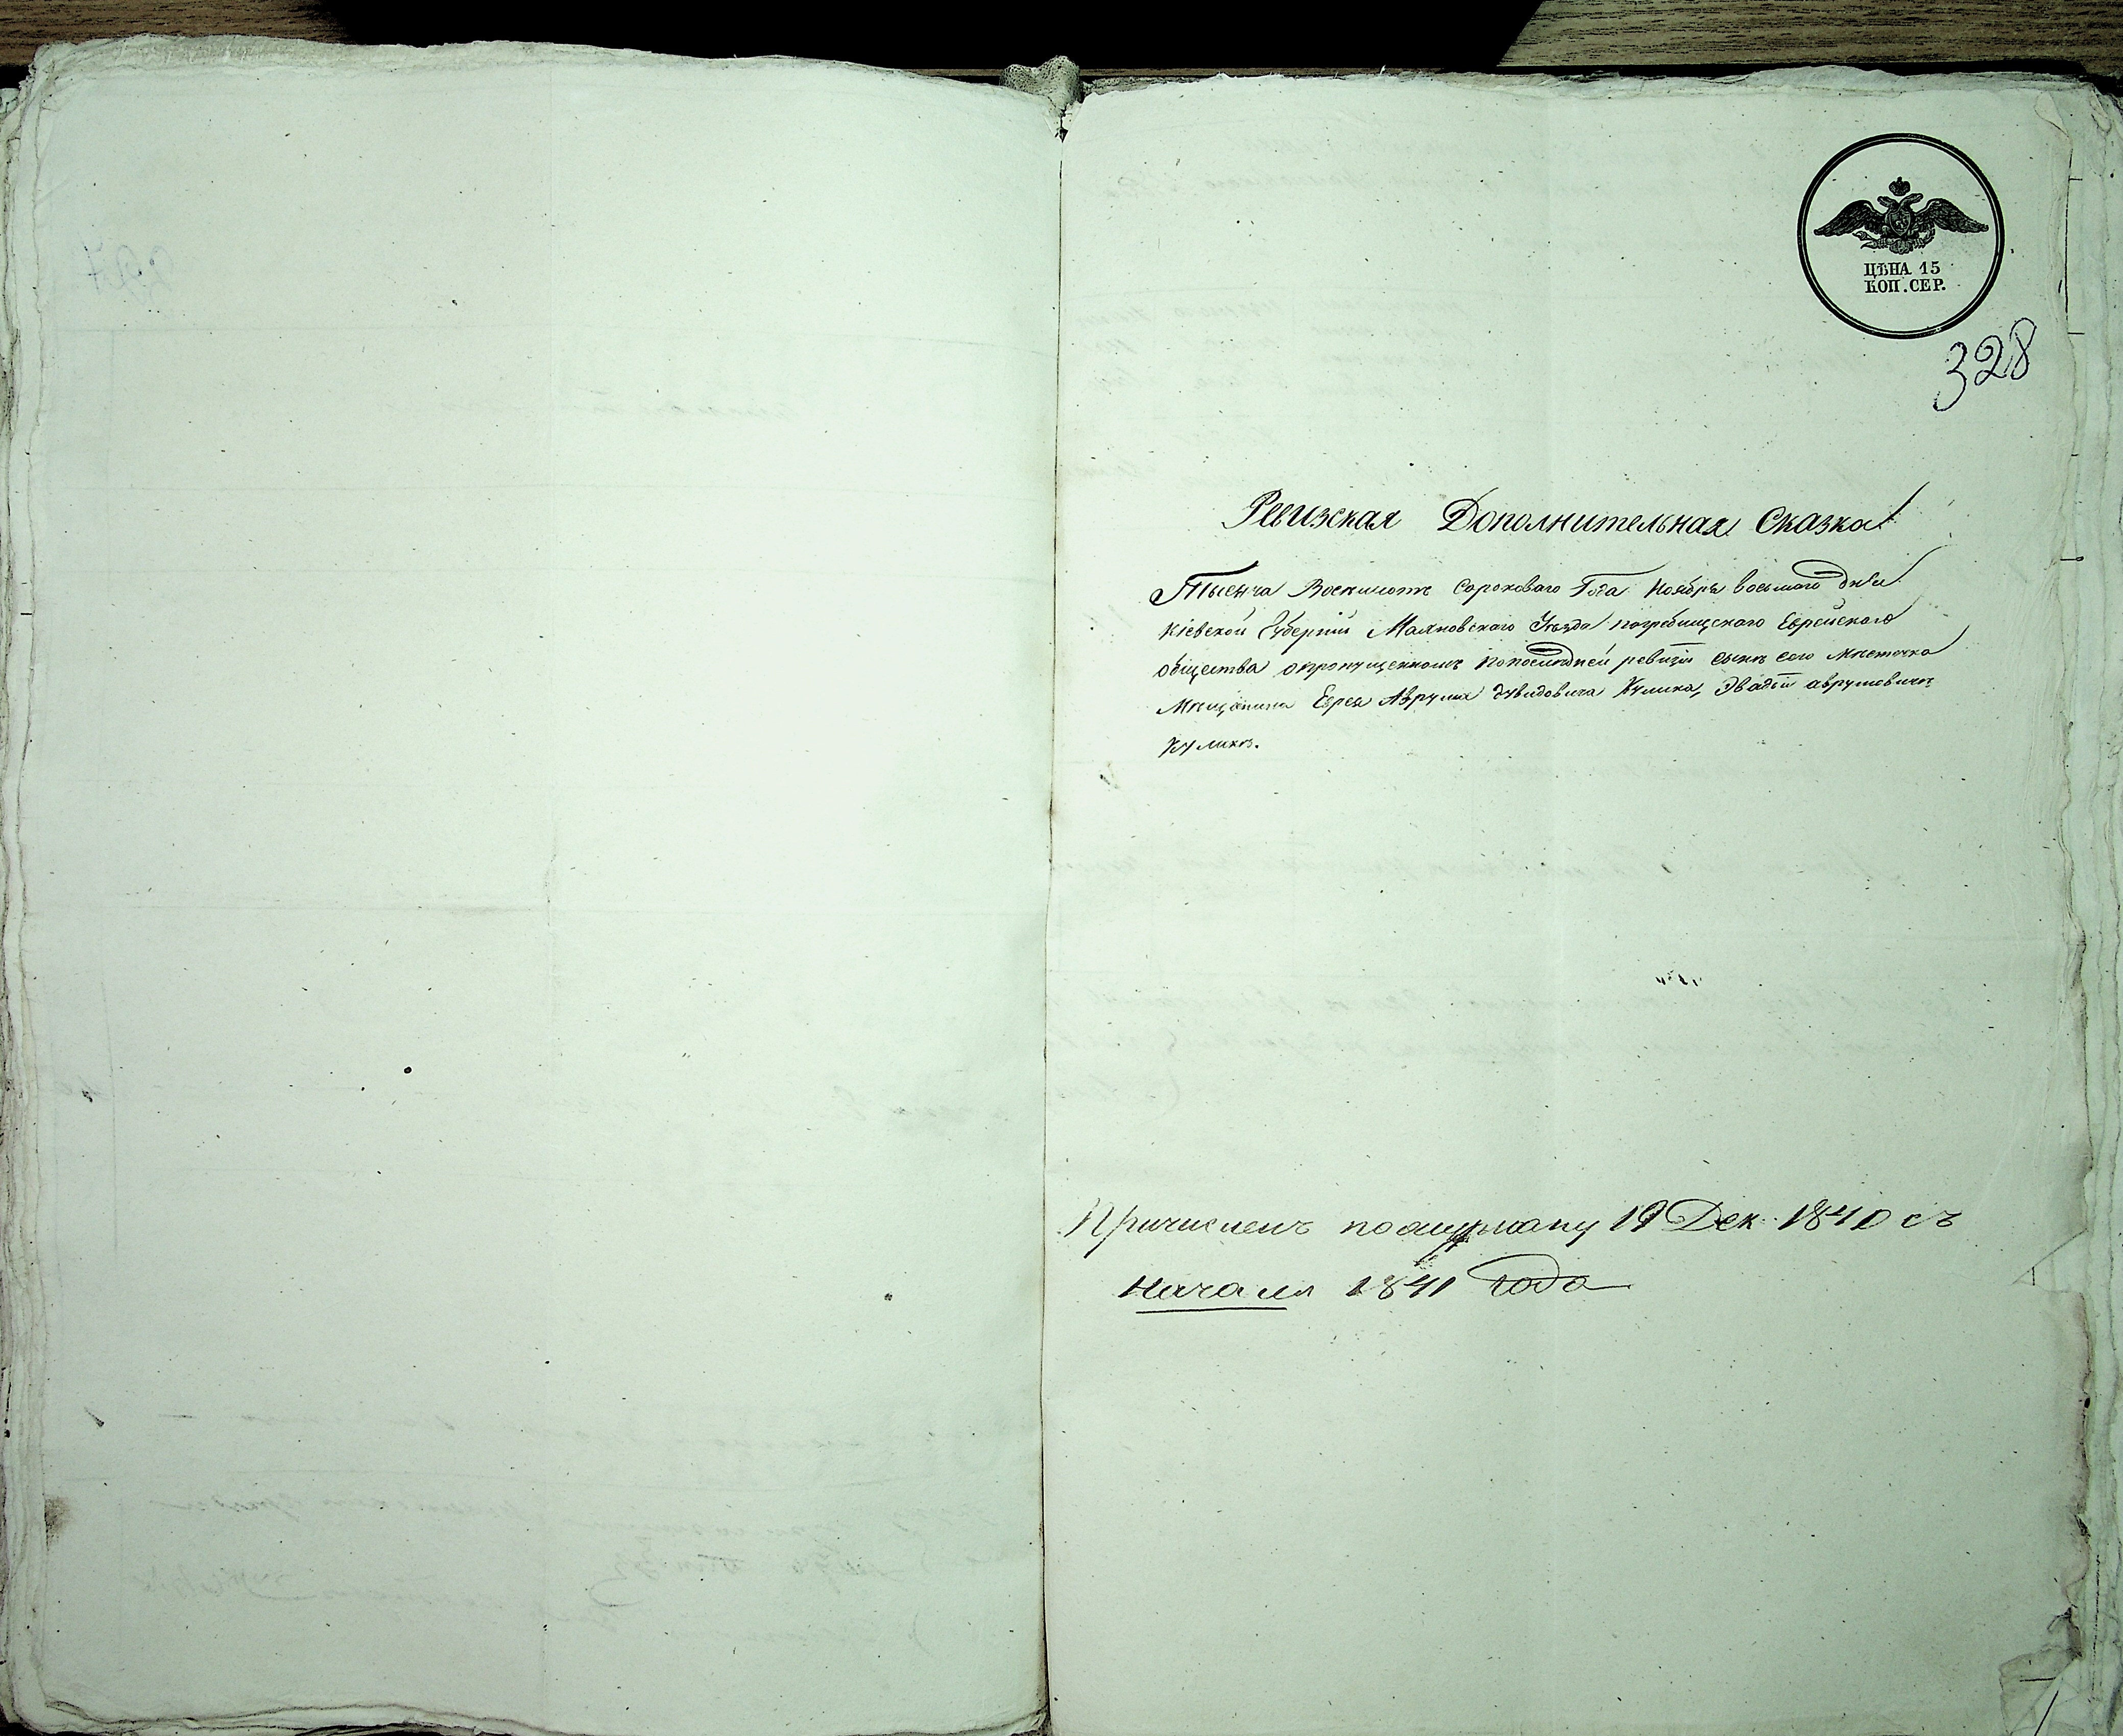 ЦѢНА 15
КОП. СЕР.
328
Ревизская Дополнительная Сказка
Тысяча Восемьсотъ Сороковаго Года Ноября восьмаго дня
Кіевской Губерніи Махновскаго Уѣзда погребищскаго Еврейскаго
общества опропущенномъ попослѣдней ревизіи сынѣ сего мѣстечка
Мѣщанина Еврея Аврума Дувидовича Кулика, аврумовичѣ
Куликѣ.
Причисленъ 19 Дек. 1840 съ
Начала 1841 года